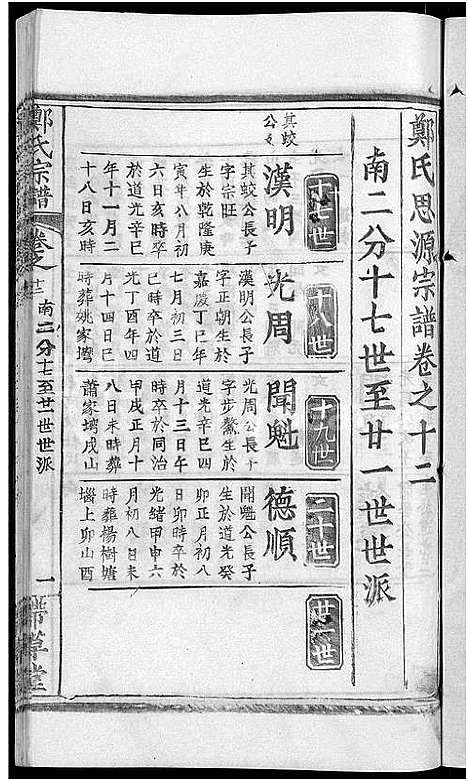 鄭氏思源宗譜卷之十二
南二分十七世至廿一世世派
十七世
其蛟公
漢明
其蛟公長子
字宗旺
生於乾隆庚
寅年八月初
六日亥時卒
於道光辛巳
年十一月二
十八日亥時
十八世
光周
漢明公長子
字正朝生於
嘉慶丁巳年
七月初三日
巳時卒於道
光丁酉年四
月十四日戌
時葬姚家塆
十九世
聞魁
光周公長子
字步鰲生於
道光辛巳四
月十三日午
時卒於同治
甲戌正月十
八日未時葬
蕭家塆戌山
二十世
德順
聞魁公長子
生於道光癸
卯正月初八
日卯時卒於
光緒甲申六
月初八日未
時葬楊樹塘
堖上卯山酉
廿一世
鄭氏宗譜
卷之十二
南二分十七至廿一世世派
一
帶草堂